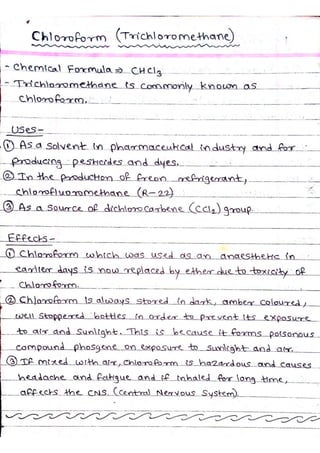 Chloroform (Trichloromethane)
- Chemical Formula ⇒ CHCl3
- Trichloromethane is commonly known as
Chloroform.
Uses-
① As a solvent in pharmaceutical industry and for
producing pesticides and dyes.
② In the production of freon refrigerant,
chlorofluoromethane (R-22)
③ As a source of dichlorocarbene (CCl2) group.
Effects-
① Chloroform which was used as an anaesthetic in
earlier days is now replaced by ether due to toxicity of
Chloroform.
② Chloroform is always stored in dark, amber coloured,
well stoppered bottles in order to prevent its exposure
to air and sunlight. This is because it forms poisonous
compound phosgene on exposure to sunlight and air.
③ If mixed with air, chloroform is hazardous and causes
headache and fatigue and if inhaled for long time,
affects the CNS. (Central Nervous System)